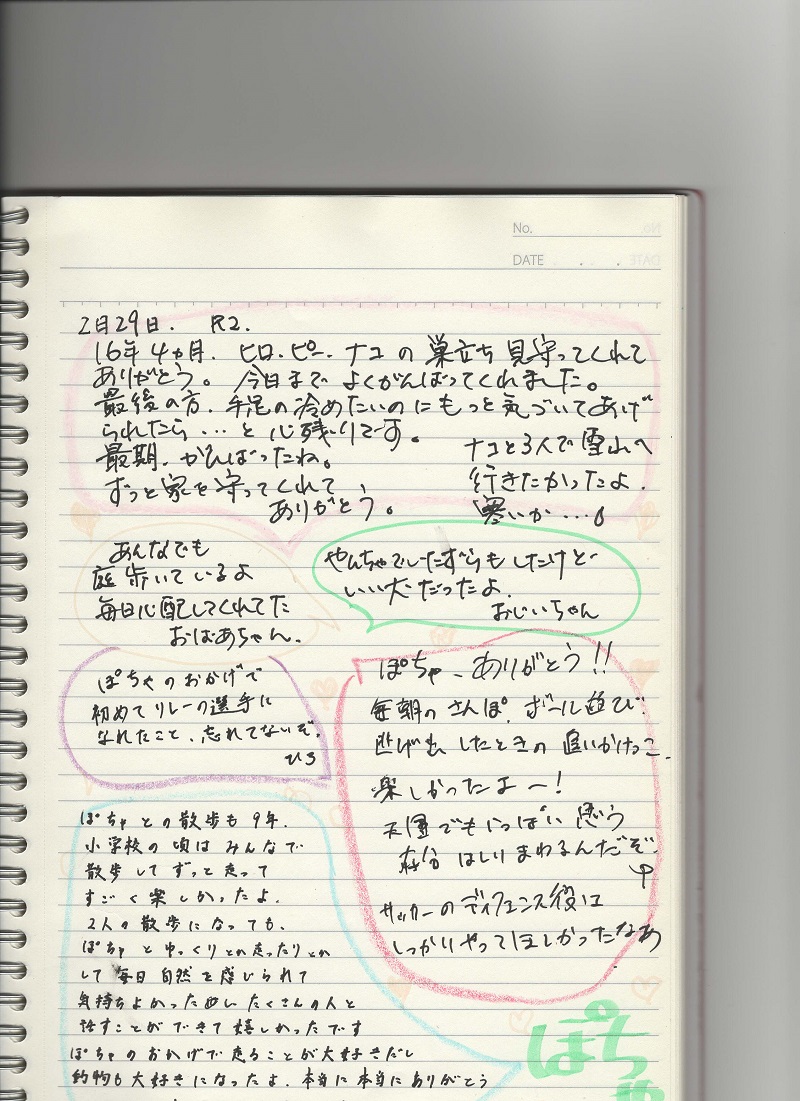 No.
DATE
2月29日. R2.
16年4ヵ月. ヒロ.ピー.ナコの巣立ち見守ってくれて
ありがとう。今日までよくがんばってくれました。
最後の方.手足の冷めたいのにもっと気づいてあげ
られたら…と心残りです。
最期.がんばったね。
ずっと家を守ってくれて
ありがとう。
ナコと3人で雪山へ
行きたかったよ.
寒いか…
あんなでも
庭歩いているよ
毎日心配してくれてた
おばあちゃん.
やんちゃでいたずらもしたけど
いい犬だったよ.
おじいちゃん
ぽちゃのおかげで
初めてリレーの選手に
なれたこと、忘れてないぞ.
ひろ
ぽちゃ、ありがとう!!
毎朝のさんぽ.ボール遊び
逃げ出したときの追いかけっこ.
楽しかったよー!
天国でもいっぱい思う
存分はしりまわるんだぞ.
サッカーのディフェンス役は
しっかりやってほしかったなあ
ぽちゃとの散歩も9年.
小学校の頃はみんなで
散歩してずっと走って
すごく楽しかったよ.
2人の散歩になっても、
ぽちゃとゆっくりとか走ったりとか
して毎日自然を感じられて
気持ちよかったたくさんの人と
話すことができて嬉しかったです
ぽちゃのおかげで走ることが大好きだし
動物も大好きになったよ.本当に本当にありがとう
ぽちゃ